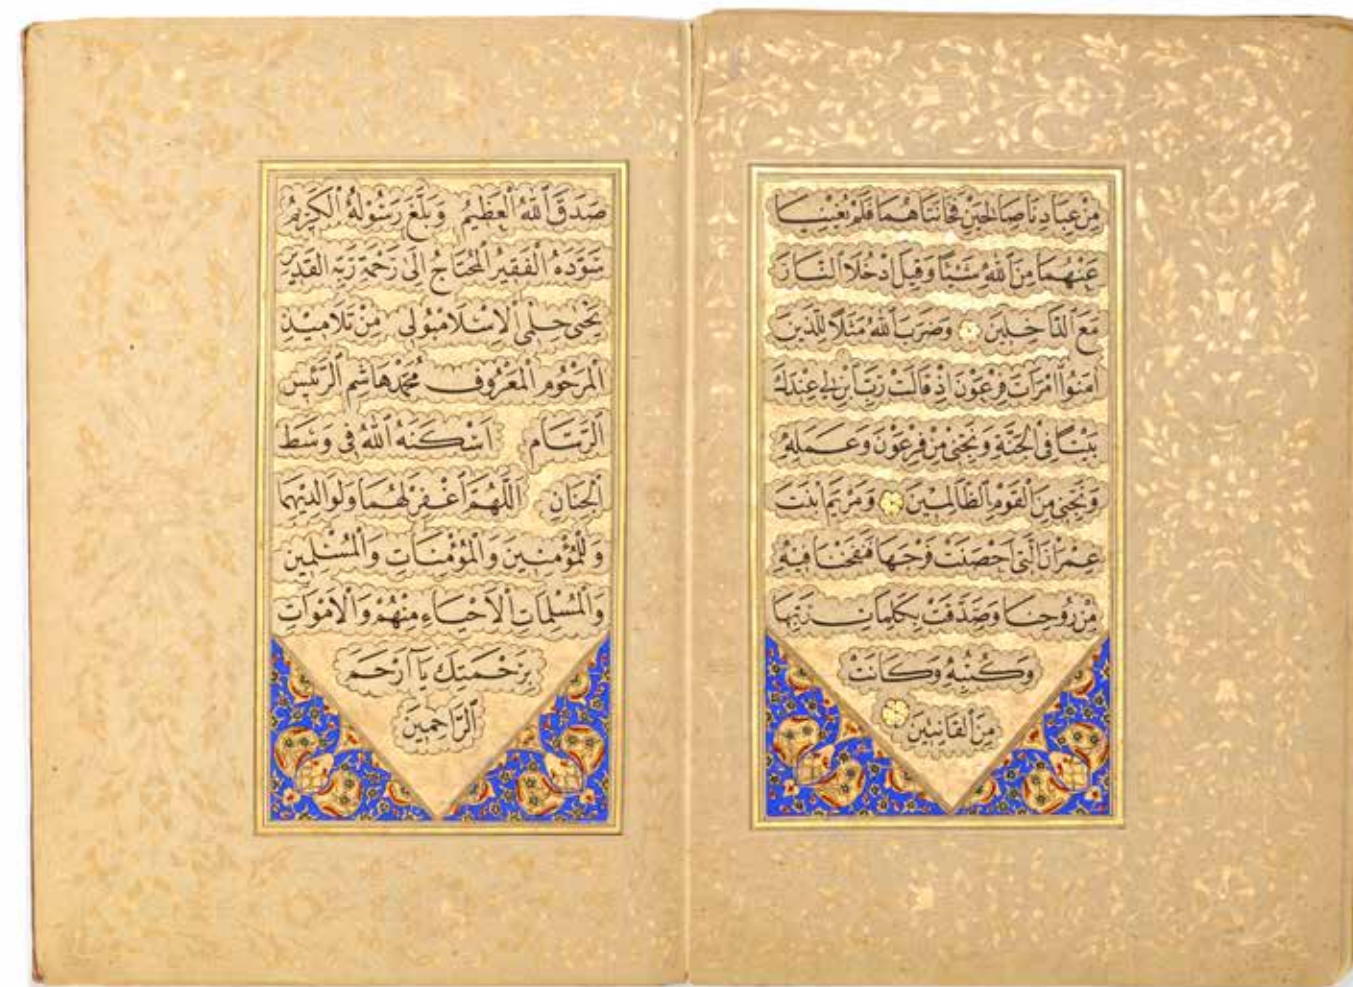 مِنْ عِبَادِنَا صَالِحَيْنِ فَخَانَتَاهُمَا فَلَمْ يُغْنِيَا
عَنْهُمَا مِنَ ٱللّٰهِ شَيْئًا وَقِيلَ ادْخُلَا النَّارَ
مَعَ ٱلدَّاخِلِينَ وَضَرَبَ ٱللّٰهُ مَثَلًا لِلَّذِينَ
اٰمَنُوا امْرَاَتَ فِرْعَوْنَ اِذْ قَالَتْ رَبِّ ابْنِ لِي عِنْدَكَ
بَيْتًا فِي الْجَنَّةِ وَنَجِّنِي مِنْ فِرْعَوْنَ وَعَمَلِهِ
وَنَجِّنِي مِنَ الْقَوْمِ ٱلظَّالِمِينَ وَمَرْيَمَ ابْنَتَ
عِمْرَانَ ٱلَّتِي اَحْصَنَتْ فَرْجَهَا فَنَفَخْنَا فِيهِ
مِنْ رُوحِنَا وَصَدَّقَتْ بِكَلِمَاتِ رَبِّهَا
وَكُتُبِهِ وَكَانَتْ
مِنَ ٱلْقَانِتِينَ
صَدَقَ ٱللّٰهُ الْعَظِيمُ وَبَلَّغَ رَسُولُهُ الْكَرِيمُ
سَوَّدَهُ الْفَقِيرُ الْمُحْتَاجُ اِلَى رَحْمَةِ رَبِّهِ الْقَدِيرِ
يَحْيٰى حِلْمِي الْاِسْلَامْبُولِي مِنْ تَلَامِيذِ
الْمَرْحُومِ الْمَعْرُوفِ مُحَمَّدْ هَاشِمِ الرَّئِيسِ
الرَّسَّامِ اَسْكَنَهُ ٱللّٰهُ فِي وَسَطِ
الْجِنَانِ اَللّٰهُمَّ اغْفِرْ لَهُمَا وَلِوَالِدَيْهِمَا
وَلِلْمُؤْمِنِينَ وَالْمُؤْمِنَاتِ وَالْمُسْلِمِينَ
وَالْمُسْلِمَاتِ الْاَحْيَاءِ مِنْهُمْ وَالْاَمْوَاتِ
بِرَحْمَتِكَ يَآ اَرْحَمَ
ٱلرَّاحِمِينَ